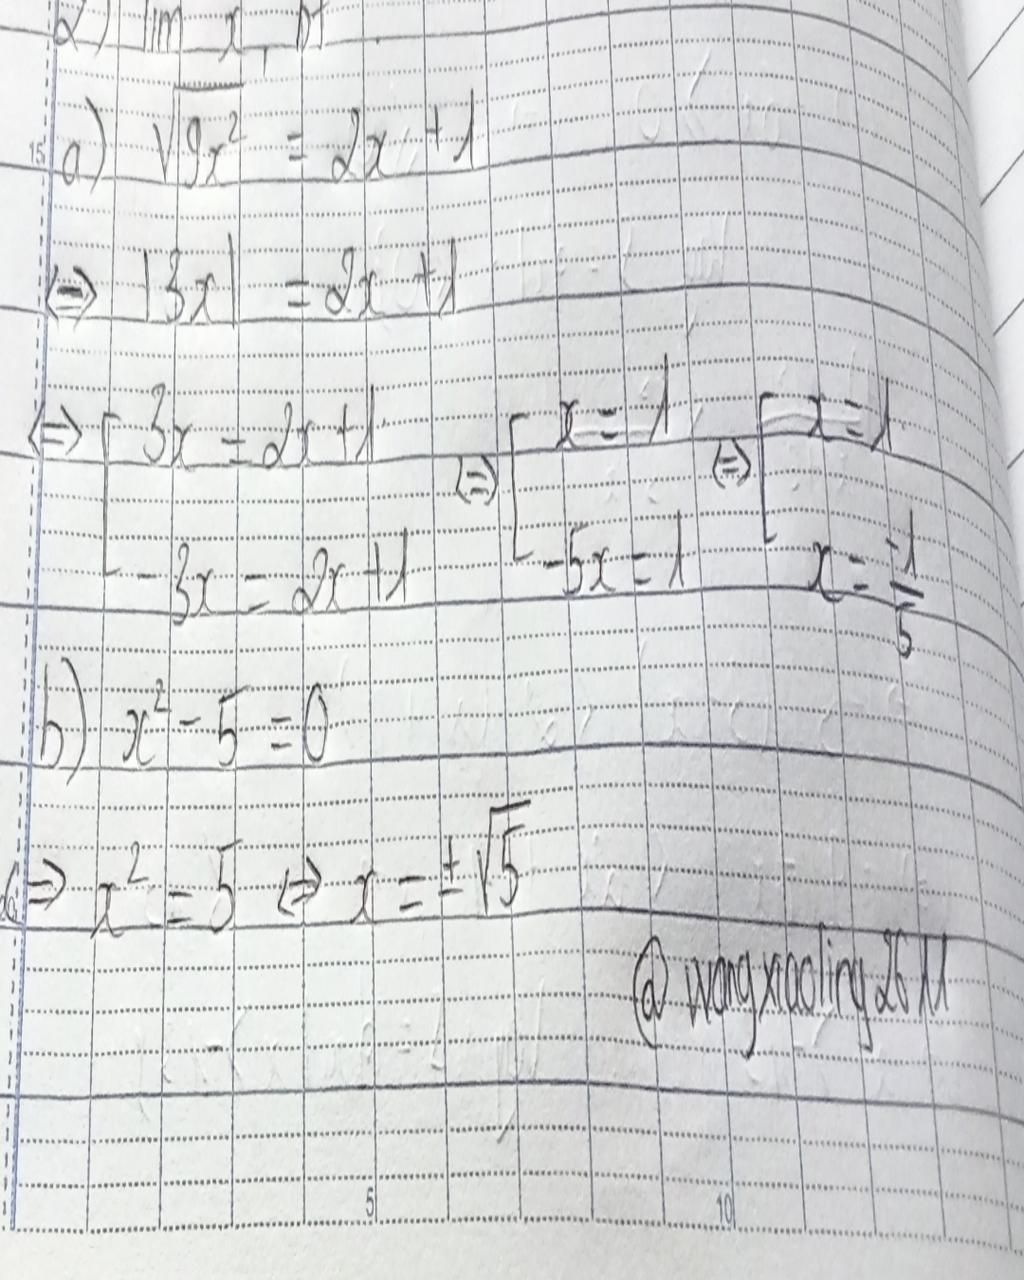 2) Tìm x, bt
a) √9x² = 2x + 1
⇔ |3x| = 2x + 1
⇔ [ 3x = 2x + 1 ⇔ [ x = 1 ⇔ [ x = 1
-3x = 2x + 1 -5x = 1 x = -1/5
b) x² - 5 = 0
⇔ x² = 5 ⇔ x = ±√5
@ wangxiaoling2611
5 10
15